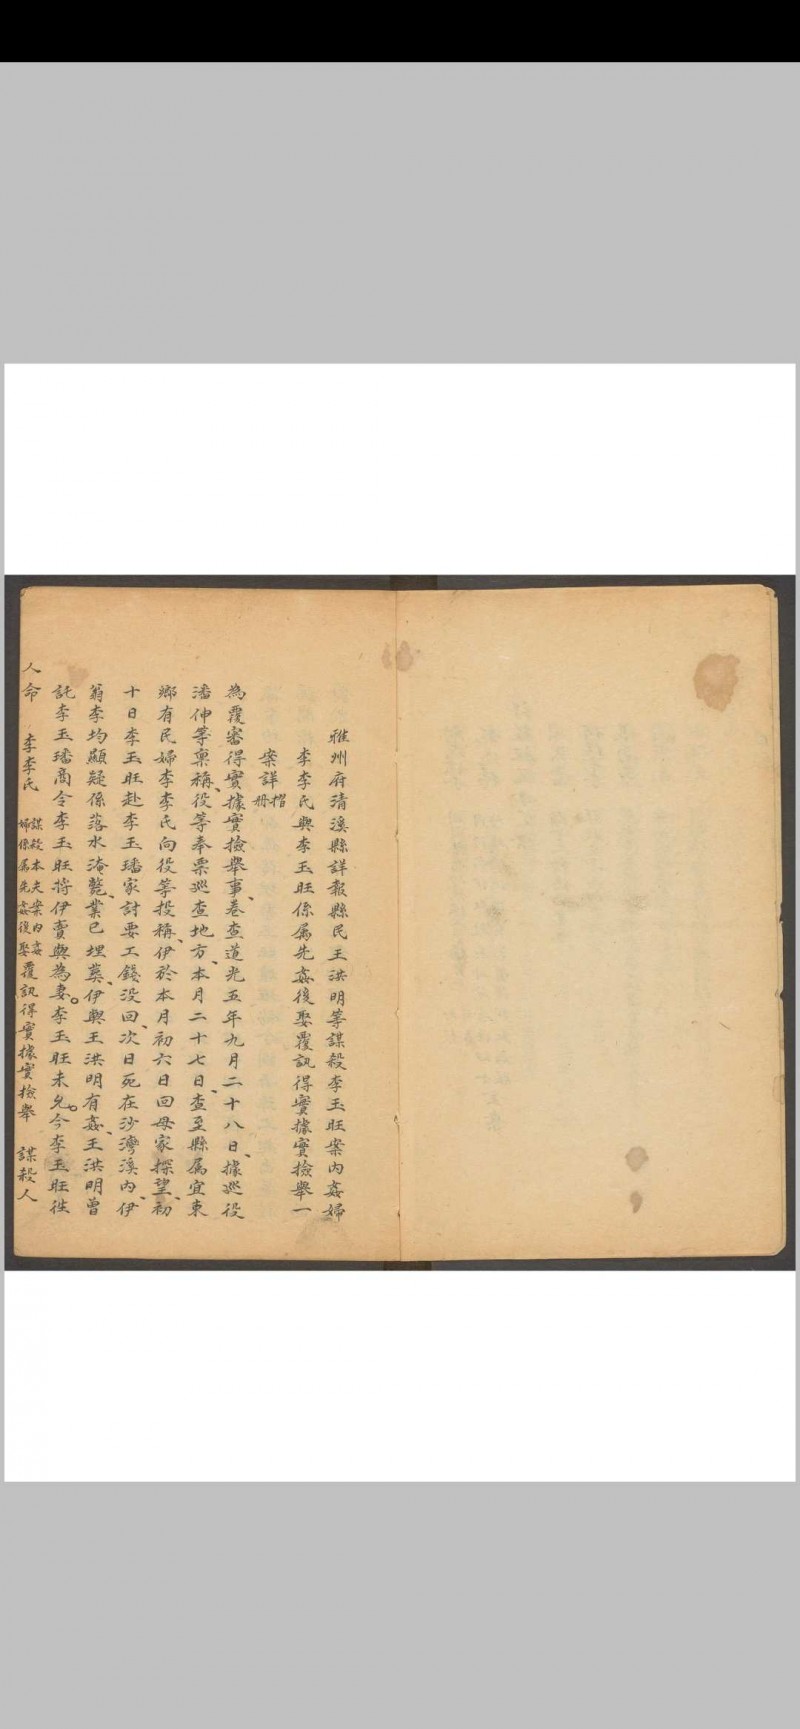 雅州府清溪縣詳報縣民王洪明等謀殺李玉旺案內姦婦
李李氏與李玉旺係属先姦後娶覆訊得實據實檢舉一
案詳摺册
為覆審得實據實檢舉事、卷查道光五年九月二十八日、據巡役
潘仲等稟稱、役等奉票巡查地方、本月二十七日、查至縣属宜東
鄉有民婦李李氏向役等投稱、伊於本月初六日回母家探望、初
十日李玉旺赴李玉璠家討要工錢没回、次日死在沙灣溪內、伊
翁李均顯疑係落水淹斃、業已埋葬、伊與王洪明有姦、王洪明曾
託李玉璠商令李玉旺將伊賣與為妻。李玉旺未允。今李玉旺徃
人命 李李氏 謀殺本夫案內姦婦係属先姦後娶覆訊得實據實檢舉 謀殺人